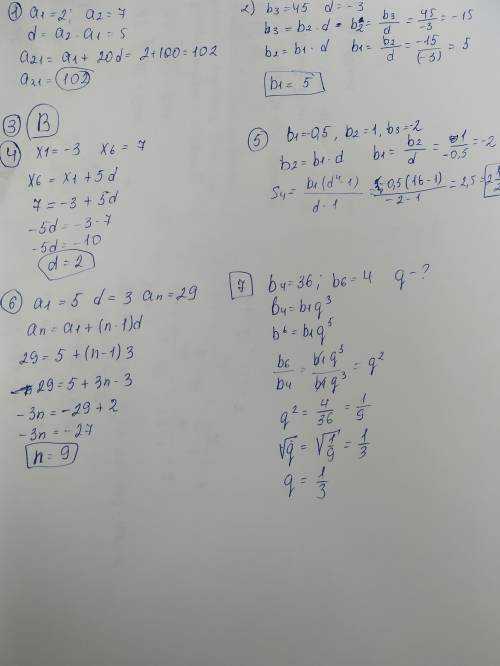 1) a1=2; a2=7
d=a2-a1=5
a21=a1+20d=2+100=102
a21=102
2) b3=45 d=-3
b3=b2·d b2=b3/d=45/-3=-15
b2=b1·d b1=b2/d=-15/(-3)=5
b1=5
3) B
4) x1=-3 x6=7
x6=x1+5d
7=-3+5d
-5d=-3-7
-5d=-10
d=2
5) b1=-0,5, b2=1, b3=-2
b2=b1·d b1=b2/d=1/-0,5=-2
S4=b1(d^4-1)/d-1=-0,5(16-1)/-2-1=2,5=2
6) a1=5 d=3 an=29
an=a1+(n-1)d
29=5+(n-1)3
29=5+3n-3
-3n=-29+2
-3n=-27
n=9
7 b4=36; b6=4 q-?
b4=b1q^3
b6=b1q^5
b6/b4=b1q^5/b1q^3=q^2
q^2=4/36=1/9
√q=√1/9=1/3
q=1/3